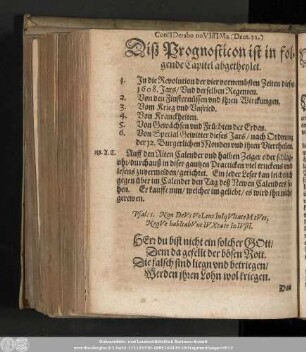 ConsIDerabo noVIssIMa. (Deut. 32.)
Diß Prognosticon ist in fol-
gende Capitel abgetheylet.
1. In die Revolution der vier vornembsten Zeiten dieses
1608. Jars/ Und derselben Regenten.
2. Von den Finsternüssen und ihren Wirckungen.
3. Vom Krieg und Unfried.
4. Von Kranckheiten.
5. Von Gewächsen und Früchten der Erden.
6. Von Special Gewitter dieses Jars/ nach Ordnung
der 12. Burgerlichen Monden und ihren Viertheilen.
Auff den Alten Calender und halben Zeiger oder schlag-
uhr/ durchauß in diser gantzen Practicken viel
lesens zuvermeiden/ gerichtet. Ein jeder Leser kan leichtlich
gegen über im Calender den Tag deß Newen Calenders se-
hen. Er kauffe nun/ welcher im geliebt/ es wird ihn nicht
gerewen.
Psal. 5. Non DeVs VoLens InIqVItateM tV es,
NeqVe habItabVnt
HErr du bist nicht ein solcher GOtt/
Dem da gefellt der bösen Rott.
Die falsch sind liegn und betriegen/
Werden ihren Lohn wol kriegen.
Das